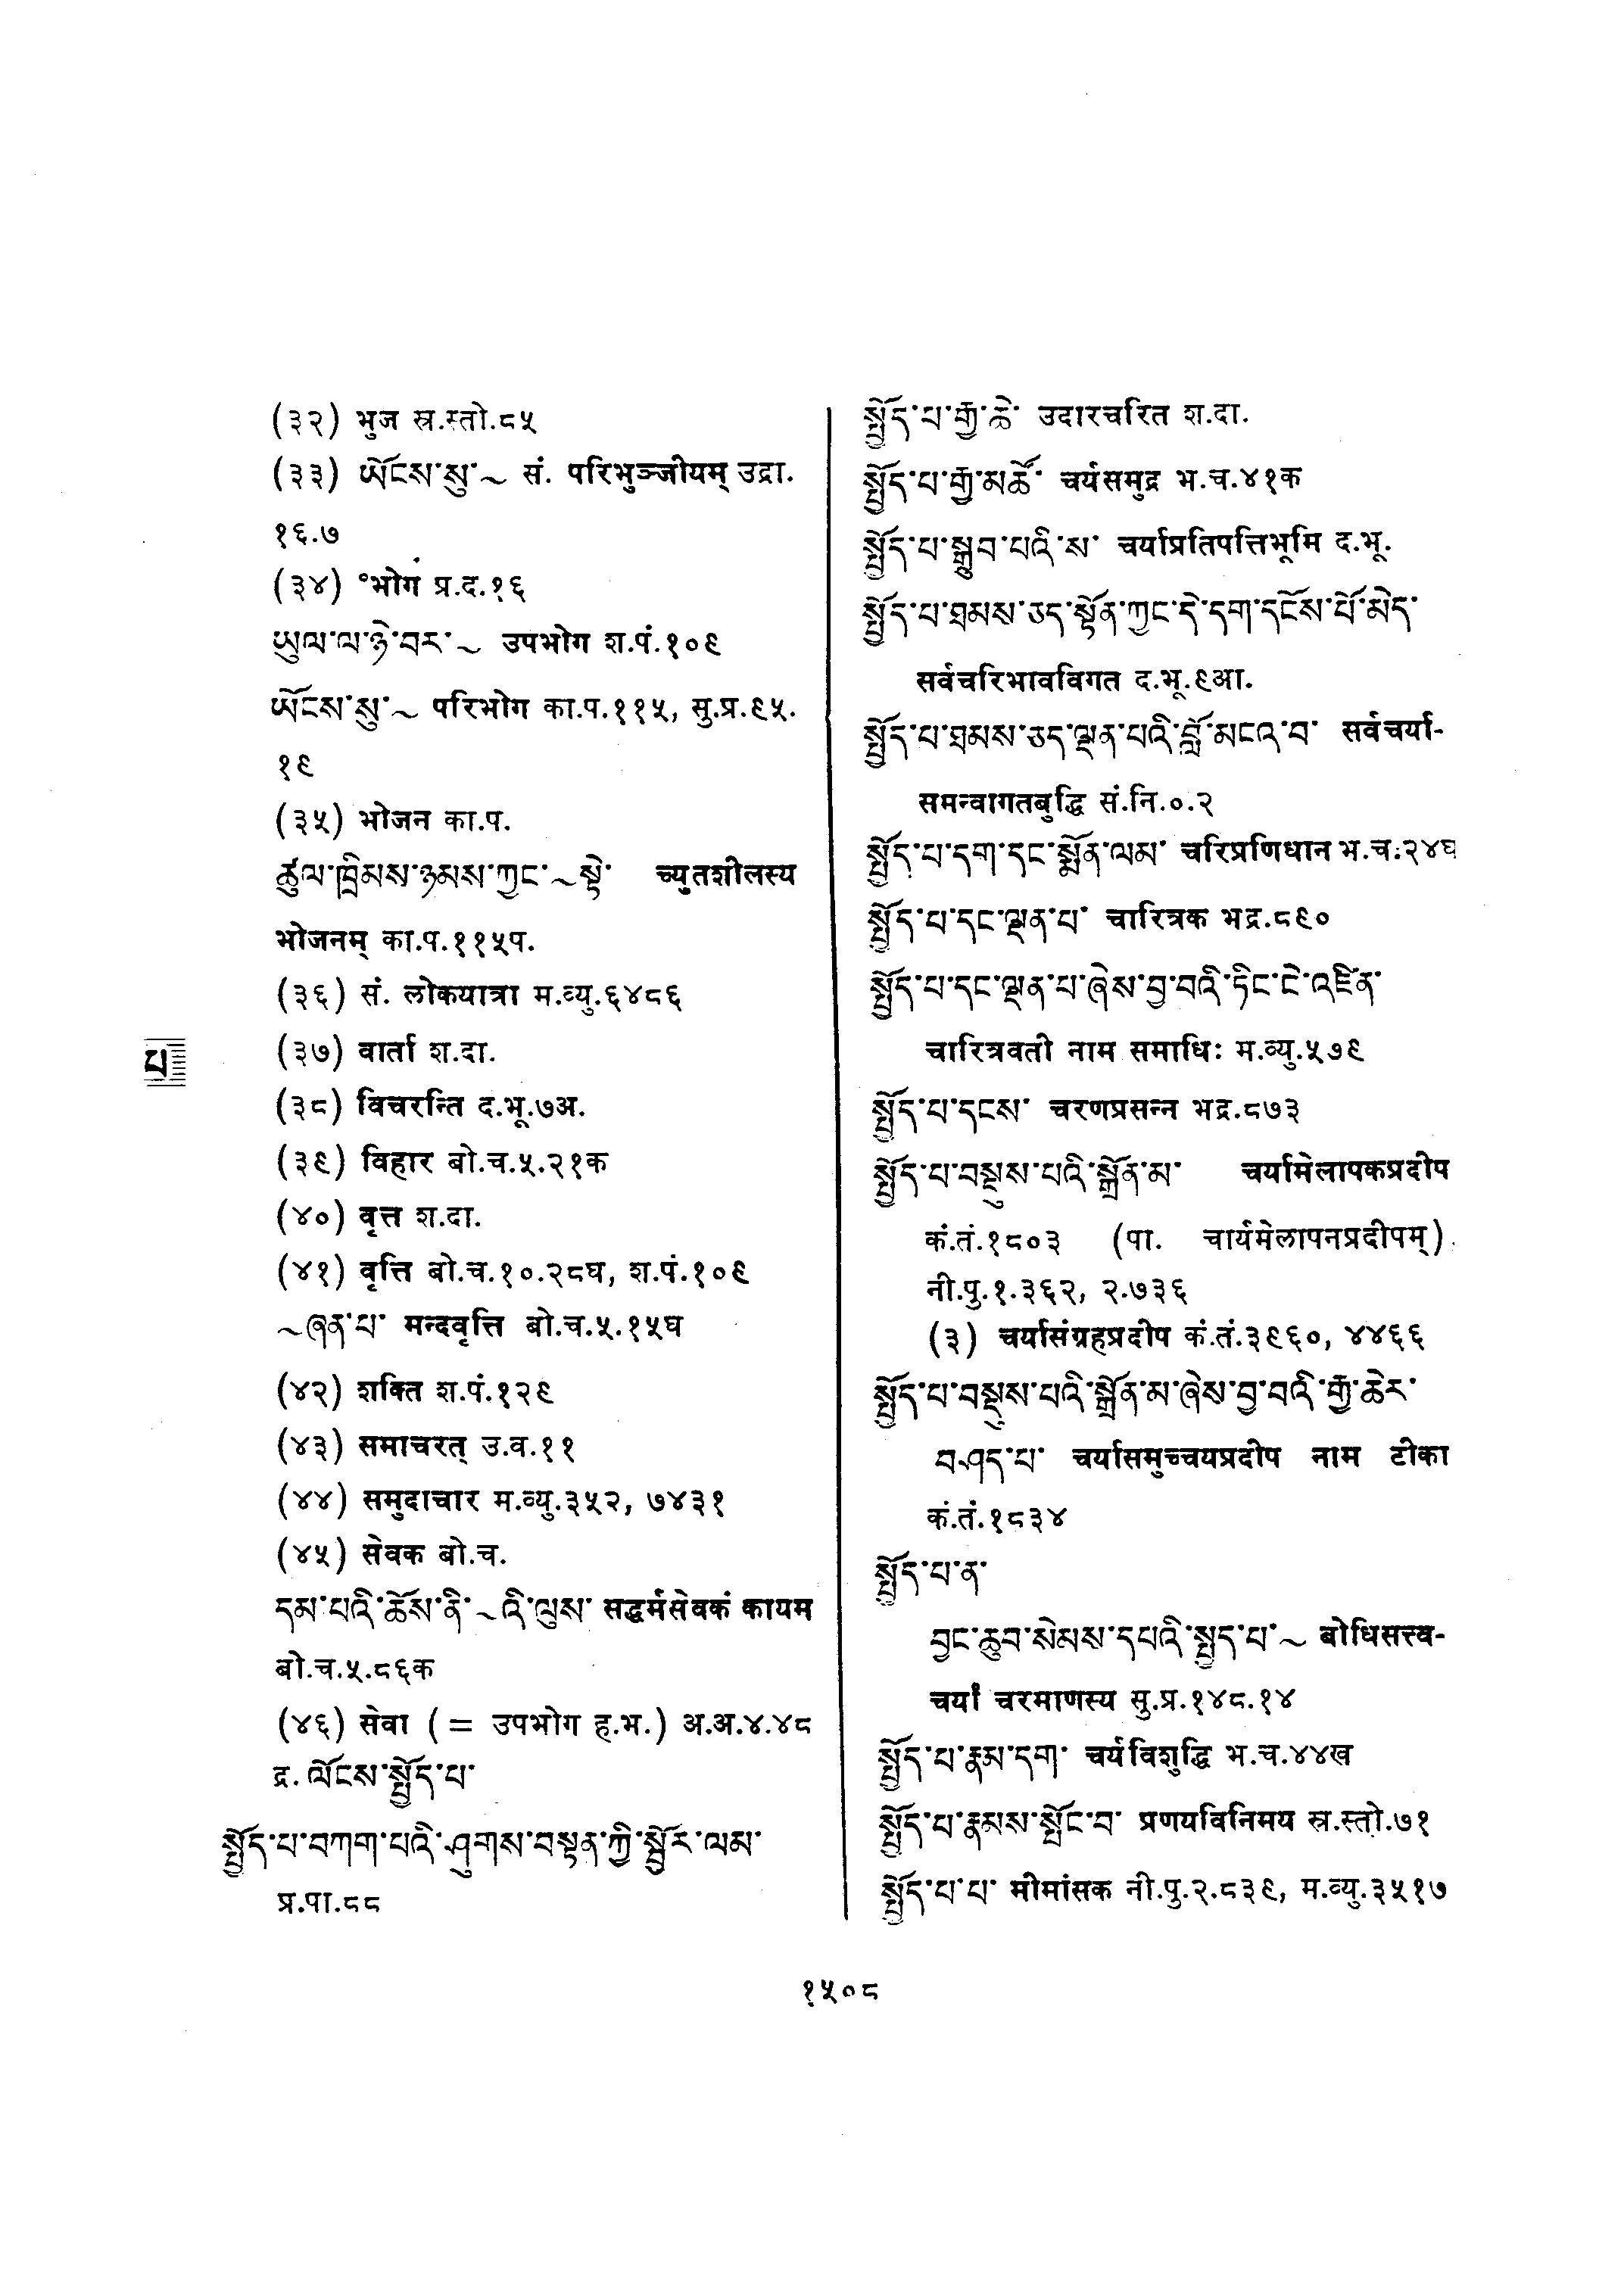 (३२) भुज स्र.स्तो.८५
(३३) ཡོངས་སུ་~ सं. परिभुञ्जीयम् उद्रा.
१६.७
(३४) °भोगं प्र.द.१६
ཡུལ་ལ་ཉེ་བར་~ उपभोग श.पं.१०९
ཡོངས་སུ་~ परिभोग का.प.११५, सु.प्र.९५.
१९
(३५) भोजन का.प.
ཚུལ་ཁྲིམས་ཉམས་ཀྱང་~སྟེ་ च्युतशीलस्य
भोजनम् का.प.११५प.
(३६) सं. लोकयात्रा म.व्यु.६४८६
(३७) वार्ता श.दा.
(३८) विचरन्ति द.भू.७अ.
(३९) विहार बो.च.५.२१क
(४०) वृत्त श.दा.
(४१) वृत्ति बो.च.१०.२८घ, श.पं.१०९
~ཞན་པ་ मन्दवृत्ति बो.च.५.१५घ
(४२) शक्ति श.पं.१२९
(४३) समाचरत् उ.व.११
(४४) समुदाचार म.व्यु.३५२, ७४३१
(४५) सेवक बो.च.
དམ་པའི་ཆོས་ནི་~འི་ལུས་ सद्धर्मसेवकं कायम
बो.च.५.८६क
(४६) सेवा (= उपभोग ह.भ.) अ.अ.४.४८
द्र. ལོངས་སྤྱོད་པ་
སྤྱོད་པ་བཀག་པའི་ཤུགས་བསྟན་ཀྱི་སྦྱོར་ལམ་
प्र.पा.८८
པ
སྤྱོད་པ་རྒྱ་ཆེ་ उदारचरित श.दा.
སྤྱོད་པ་རྒྱ་མཚོ་ चर्यसमुद्र भ.च.४१क
སྤྱོད་པ་སྒྲུབ་པའི་ས་ चर्याप्रतिपत्तिभूमि द.भू.
སྤྱོད་པ་ཐམས་ཅད་སྟོན་ཀྱང་དེ་དག་དངོས་པོ་མེད་
सर्वचरिभावविगत द.भू.९आ.
སྤྱོད་པ་ཐམས་ཅད་ལྡན་པའི་བློ་མངའ་བ་ सर्वचर्या-
समन्वागतबुद्धि सं.नि.०.२
སྤྱོད་པ་དག་དང་སྨོན་ལམ་ चरिप्रणिधान भ.च.२४घ
སྤྱོད་པ་དང་ལྡན་པ་ चारित्रक भद्र.८९०
སྤྱོད་པ་དང་ལྡན་པ་ཞེས་བྱ་བའི་ཏིང་ངེ་འཛིན་
चारित्रवती नाम समाधिः म.व्यु.५७९
སྤྱོད་པ་དངས་ चरणप्रसन्न भद्र.८७३
སྤྱོད་པ་བསྡུས་པའི་སྒྲོན་མ་ चर्यामेलापकप्रदीप
कं.तं.१८०३ (पा. चार्यमेलापनप्रदीपम्)
नी.पु.१.३६२, २.७३६
(३) चर्यासंग्रहप्रदीप कं.तं.३९६०, ४४६६
སྤྱོད་པ་བསྡུས་པའི་སྒྲོན་མ་ཞེས་བྱ་བའི་རྒྱ་ཆེར་
བཤད་པ་ चर्यासमुच्चयप्रदीप नाम टीका
कं.तं.१८३४
སྤྱོད་པ་ན་
བྱང་ཆུབ་སེམས་དཔའི་སྤྱད་པ་~ बोधिसत्त्व-
चर्यां चरमाणस्य सु.प्र.१४८.१४
སྤྱོད་པ་རྣམ་དག་ चर्यविशुद्धि भ.च.४४ख
སྤྱོད་པ་རྣམས་སྤོང་བ་ प्रणयविनिमय स्र.स्तो.७१
སྤྱོད་པ་པ་ मीमांसक नी.पु.२.८३९, म.व्यु.३५१७
१५०८